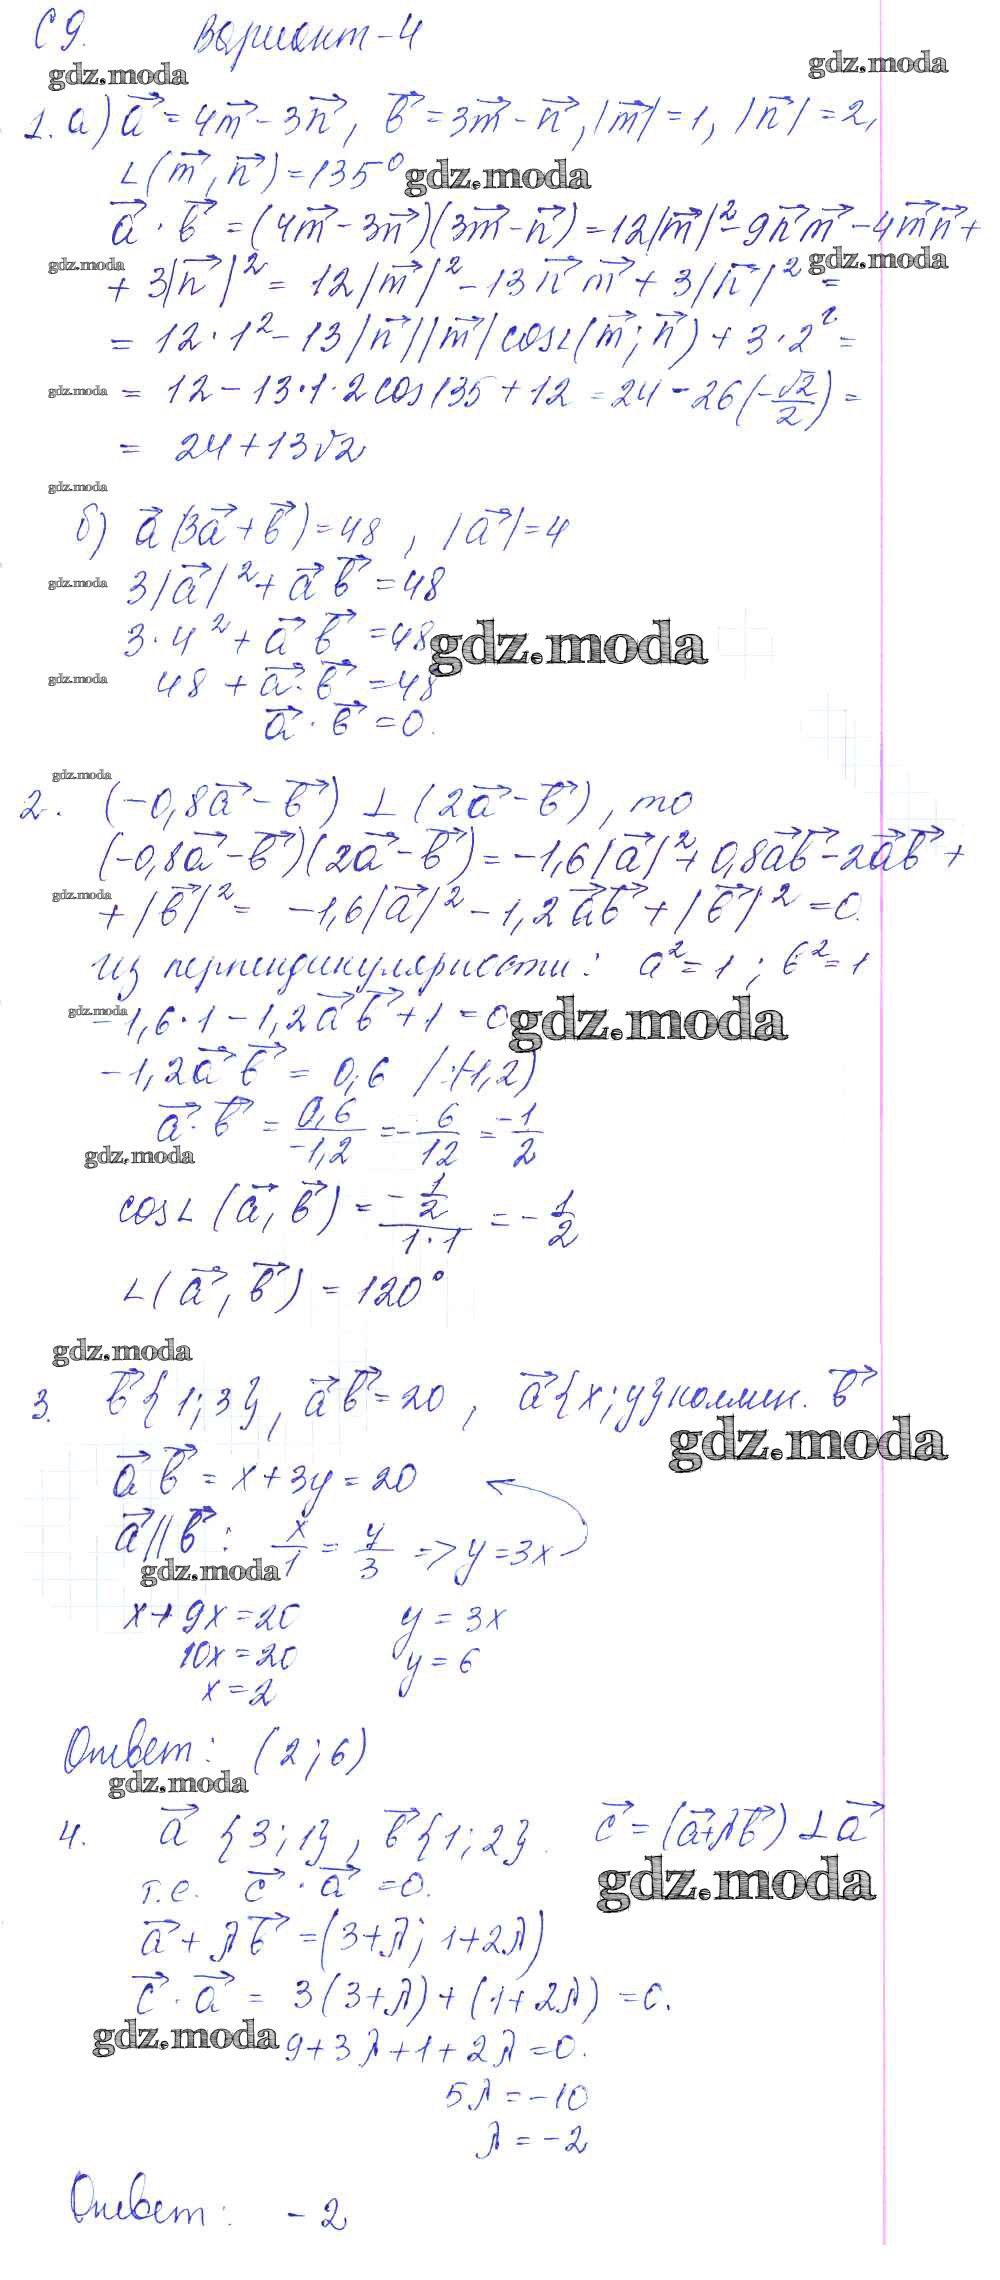 С 9. Вариант-4
gdz.moda gdz.moda
1. а) a⃗ = 4m⃗ - 3n⃗, b⃗ = 3m⃗ - n⃗, |m⃗| = 1, |n⃗| = 2,
∠(m⃗, n⃗) = 135° gdz.moda
a⃗ · b⃗ = (4m⃗ - 3n⃗)(3m⃗ - n⃗) = 12|m⃗|² - 9n⃗m⃗ - 4m⃗n⃗ +
gdz.moda gdz.moda
+ 3|n⃗|² = 12|m⃗|² - 13n⃗m⃗ + 3|n⃗|² =
= 12 · 1² - 13|n⃗||m⃗|cos∠(m⃗; n⃗) + 3 · 2² =
gdz.moda
= 12 - 13 · 1 · 2 cos135 + 12 = 24 - 26(-√2/2) =
= 24 + 13√2
gdz.moda
б) a⃗(3a⃗ + b⃗) = 48, |a⃗| = 4
gdz.moda
3|a⃗|² + a⃗ b⃗ = 48
3 · 4² + a⃗ b⃗ = 48
gdz.moda
gdz.moda
48 + a⃗ · b⃗ = 48
a⃗ · b⃗ = 0.
gdz.moda
2. (-0,8a⃗ - b⃗) ⊥ (2a⃗ - b⃗), то
(-0,8a⃗ - b⃗)(2a⃗ - b⃗) = -1,6|a⃗|² + 0,8a⃗b⃗ - 2a⃗b⃗ +
gdz.moda
+ |b⃗|² = -1,6|a⃗|² - 1,2a⃗b⃗ + |b⃗|² = 0.
Из перпендикулярности: a² = 1; b² = 1
gdz.moda
-1,6 · 1 - 1,2a⃗b⃗ + 1 = 0
gdz.moda
-1,2a⃗ b⃗ = 0,6 |:(-1,2)
a⃗ · b⃗ = 0,6/-1,2 = -6/12 = -1/2
gdz.moda
cos∠(a⃗, b⃗) = -1/2 / 1·1 = -1/2
∠(a⃗, b⃗) = 120°
gdz.moda
3. b⃗{1; 3}, a⃗ b⃗ = 20, a⃗{x; y} коллин. b⃗
gdz.moda
a⃗ b⃗ = x + 3y = 20
a⃗ || b⃗: x/1 = y/3 => y = 3x
gdz.moda
x + 9x = 20 y = 3x
10x = 20 y = 6
x = 2
Ответ: (2; 6)
gdz.moda
4. a⃗ {3; 1}, b⃗{1; 2}. c⃗ = (a⃗+λb⃗) ⊥ a⃗
gdz.moda
т.е. c⃗ · a⃗ = 0.
a⃗ + λb⃗ = (3+λ; 1+2λ)
c⃗ · a⃗ = 3(3+λ) + (1+2λ) = 0.
gdz.moda
9 + 3λ + 1 + 2λ = 0.
5λ = -10
λ = -2
Ответ: -2